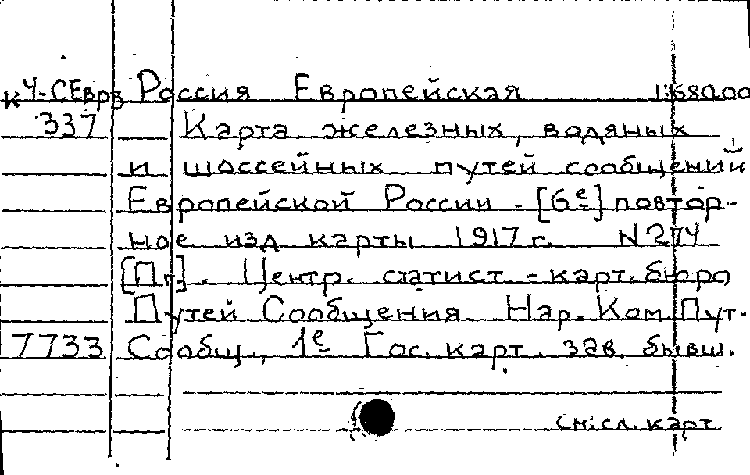 К Ч-СЕвр3 Россия Европейская 1:1680.000
337 Карта железных, водяных
и шоссейных путей сообщений
Европейской России - [6е] повтор-
ное изд карты 1917 г. N 274
[Пг]. Центр. статист.-карт. бюро
Путей Сообщения Нар. Ком. Пут.
7733 Сообщ., 1е Гос. карт. зав. бывш.
см. сл. карт